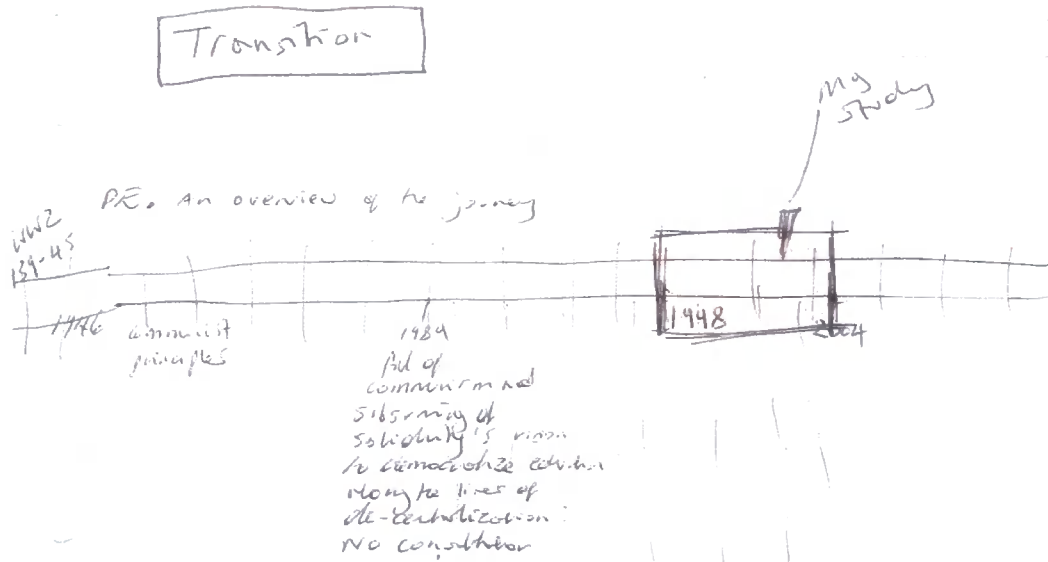 Transition
My
study
PE. An overview of the journey
WW2
'39-45
communist
principles
1989
Fall of
communism and
subsuming of
solidarity's vision
to democratize
along the lines of
de-centralization
No
1998
2004